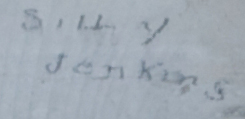 SILLY
JenKins